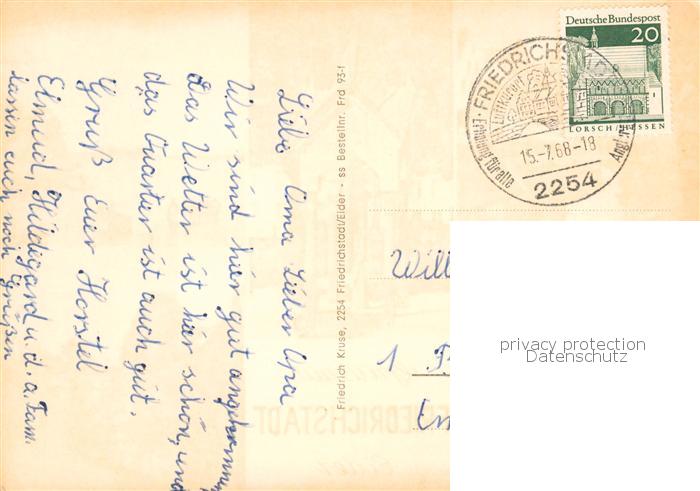 Liebe Oma Lieber Opa
Wir sind hier gut angekommen
Das Wetter ist hier schön, und
das Quartier ist auch gut.
Gruß Euer Horstel
Elmud, Hildegard u. d. a. Fam.
lassen euch noch Grüßen
Friedrich Kruse, 2254 Friedrichstadt/Eider - ss Bestellnr. Frd 93-f
Deutsche Bundespost
20
LORSCH/HESSEN
FRIEDRICHSTADT
Luftkurort
Erholung für alle
15.-7.68-18
2254
Will
1
privacy protection
Datenschutz